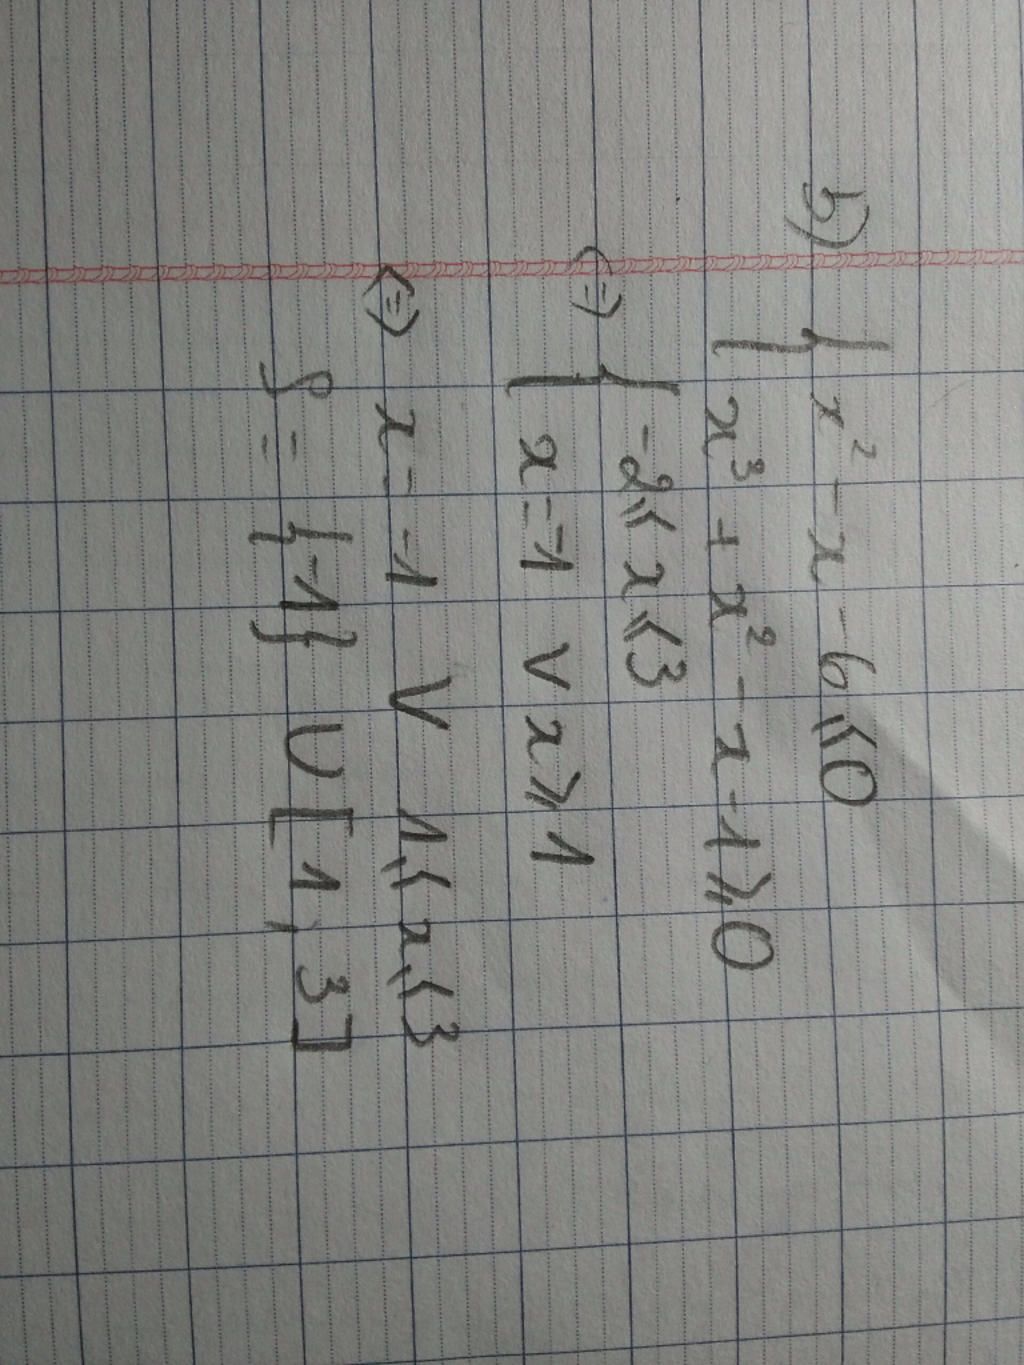 b) { x² - x - 6 ⩽ 0
{ x³ + x² - x - 1 ⩾ 0
<=> { -2 ⩽ x ⩽ 3
{ x = -1 ∨ x ⩾ 1
<=> x = -1 ∨ 1 ⩽ x ⩽ 3
S = {-1} ∪ [1, 3]